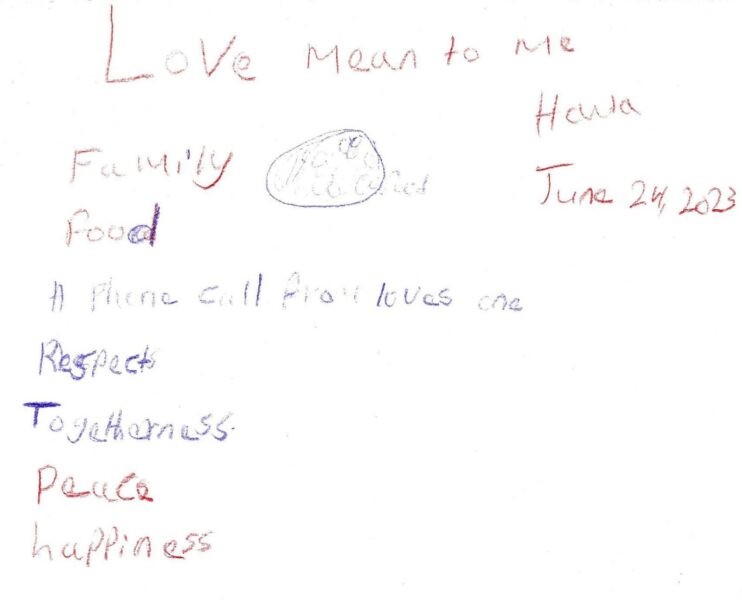 Love Mean to Me
Hawa
June 24, 2023
Family
Food
A Phone call from loves one
Respects
Togetherness.
Peace
happiness